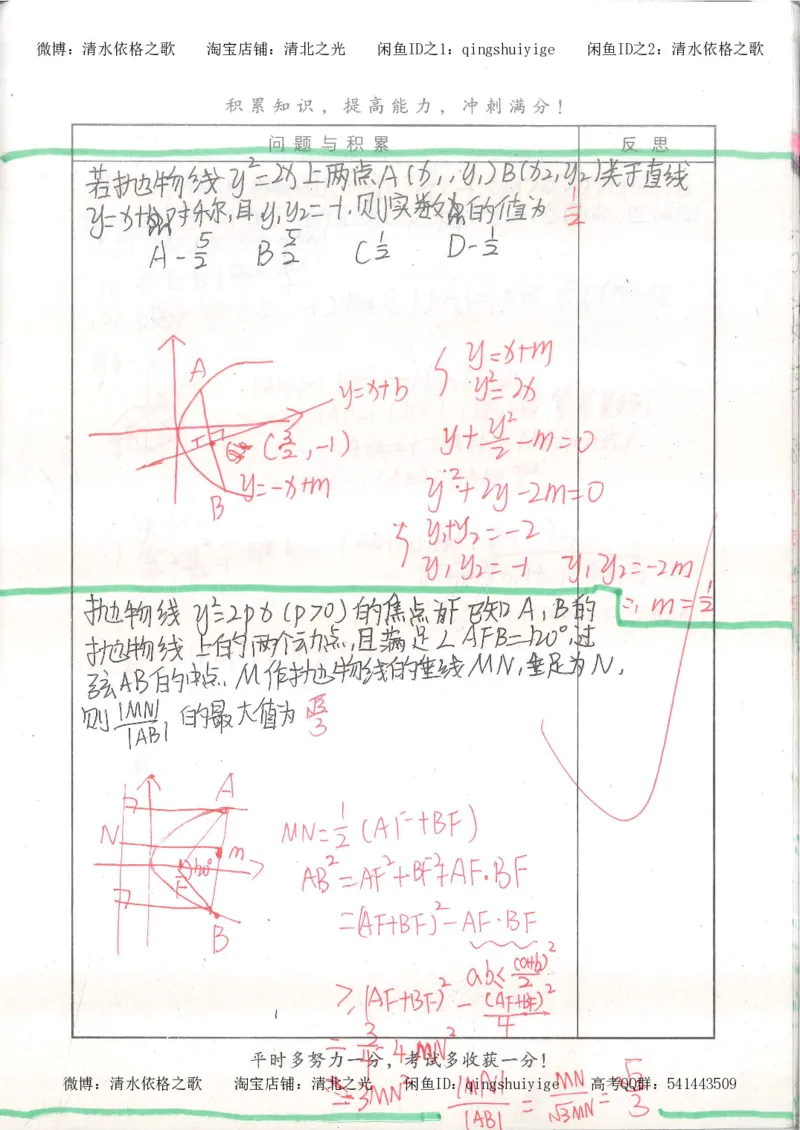 微博：清水依格之歌 淘宝店铺：清北之光 闲鱼ID之1：qingshuiyige 闲鱼ID之2：清水依格之歌
积累知识，提高能力，冲刺满分！
问题与积累 反思
若抛物线 y²=2x上两点A(x₁,y₁)B(x₂,y₂)关于直线
y=x+b对称,且y₁y₂=-1.则实数b的值为 1/2
A -5/2 B 5/2 C 1/2 D -1/2
A
y=x+b
(3/2,-1)
y=-x+m
B
{ y=x+m
y²=2x
y+y²/2-m=0
y²+2y-2m=0
{ y₁+y₂=-2
y₁y₂=-1 y₁y₂=-2m
∴ m=1/2
抛物线 y²=2px(p>0)的焦点为F已知A,B的
抛物线上的两个动点,且满足∠AFB=120°,过
弦AB的中点M作抛物线的垂线MN,垂足为N,
则|MN|/|AB|的最大值为 √3/3
A
N
M
120°
F
B
MN=1/2(AF+BF)
AB²=AF²+BF²+AF·BF
=(AF+BF)²-AF·BF
ab≤(a+b)²/2
≥(AF+BF)²-(AF+BF)²/4
=3/4·4MN²
=3MN²
|MN|/|AB|=MN/√3MN=√3/3
平时多努力一分，考试多收获一分！
微博：清水依格之歌 淘宝店铺：清北之光 闲鱼ID：qingshuiyige 高考QQ群：541443509